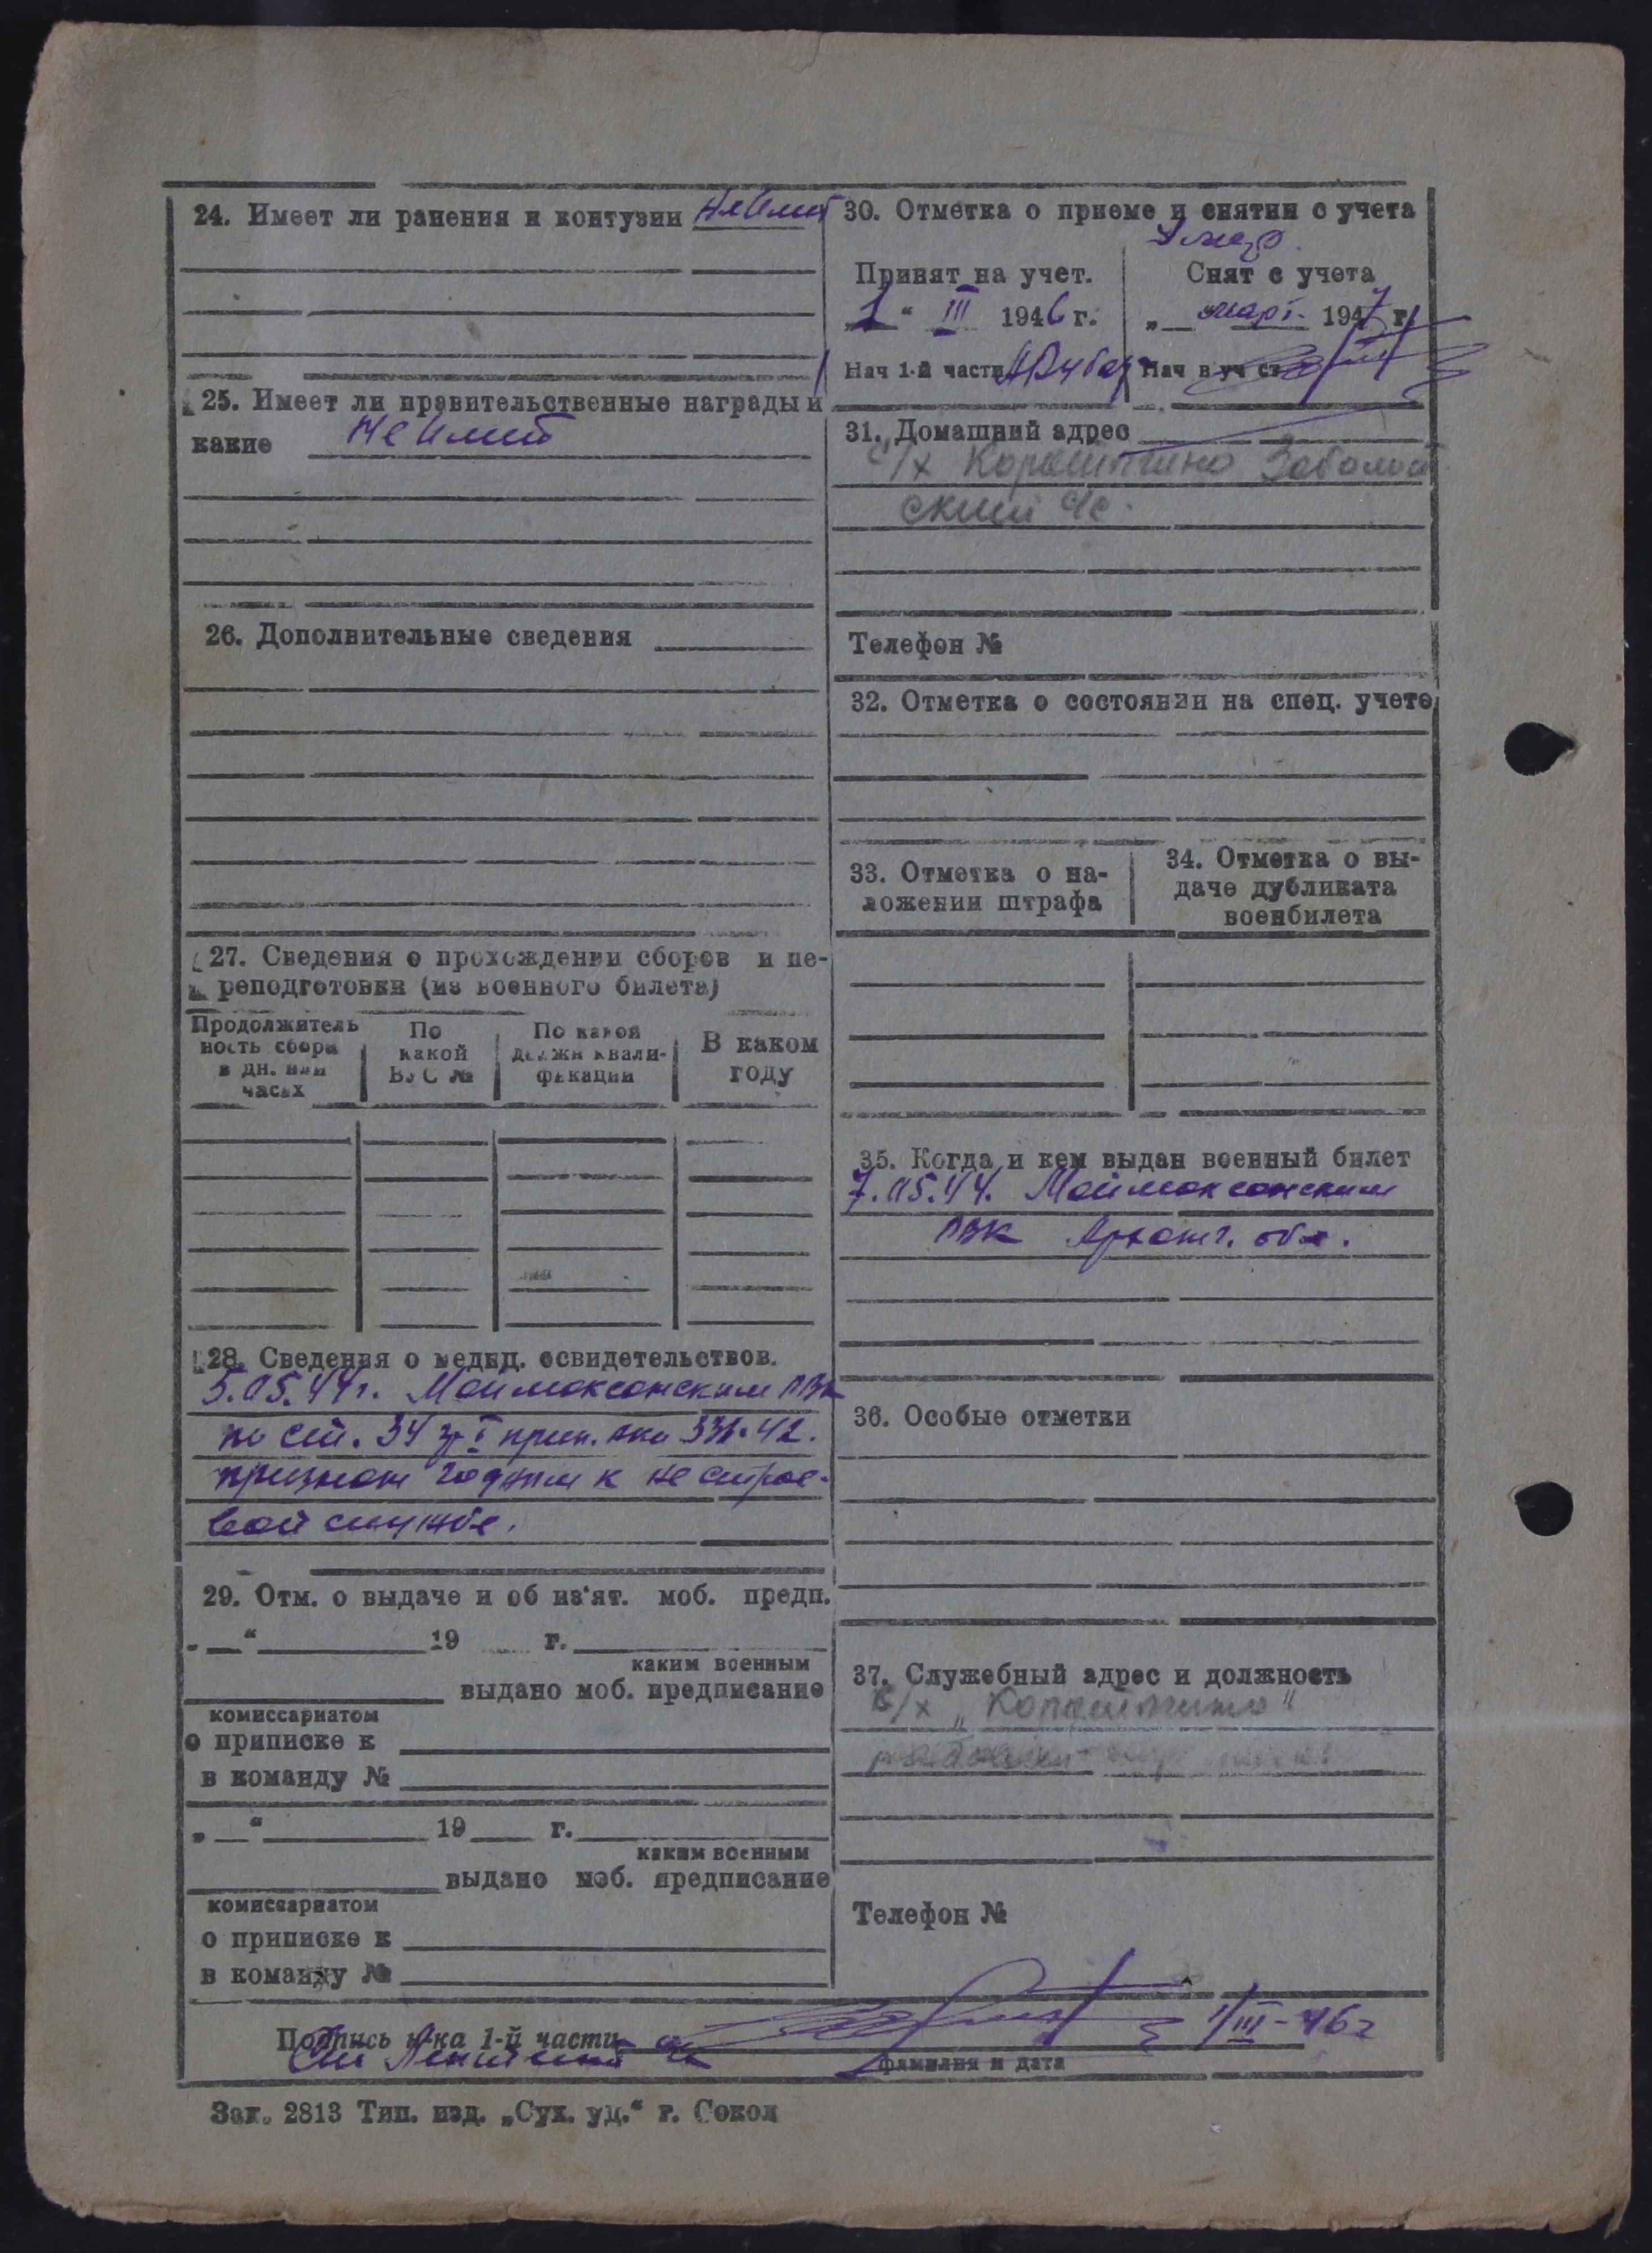 24. Имеет ли ранения и контузии не имеет
25. Имеет ли правительственные награды и
какие не имеет
26. Дополнительные сведения
27. Сведения о прохождении сборов и пе-
реподготовки (из военного билета)
Продолжитель
ность сбора
в дн. или
часах
По
какой
ВУС №
По какой
должн квали-
фикации
В каком
году
28. Сведения о медиц. освидетельствов.
5.05.44г. Маймаксанским РВК
по ст. 34 гр I прик. нко 336-42.
признан годным к не строе-
вой службе.
29. Отм. о выдаче и об из'ят. моб. предп.
„ “ 19 г.
каким военным
выдано моб. предписание
комиссариатом
о приписке к
в команду №
„ “ 19 г.
каким военным
выдано моб. предписание
комиссариатом
о приписке к
в команду №
30. Отметка о приеме и снятии с учета
Умер.
Принят на учет.
„1“ III 1946 г.
Нач 1-й части
Снят с учета
„ “ март 1947 г.
Нач в уч ст
31. Домашний адрес
с/х
ский с/с
Телефон №
32. Отметка о состоянии на спец. учете
33. Отметка о на-
ложении штрафа
34. Отметка о вы-
даче дубликата
военбилета
35. Когда и кем выдан военный билет
7.05.44. Маймаксанским
РВК Арханг. обл.
36. Особые отметки
37. Служебный адрес и должность
с/х
Телефон №
Подпись н-ка 1-й части
Ст Лейтенант
1/III-46г
фамилия и дата
Зак. 2813 Тип. изд. „Сух. уд.“ г. Сокол